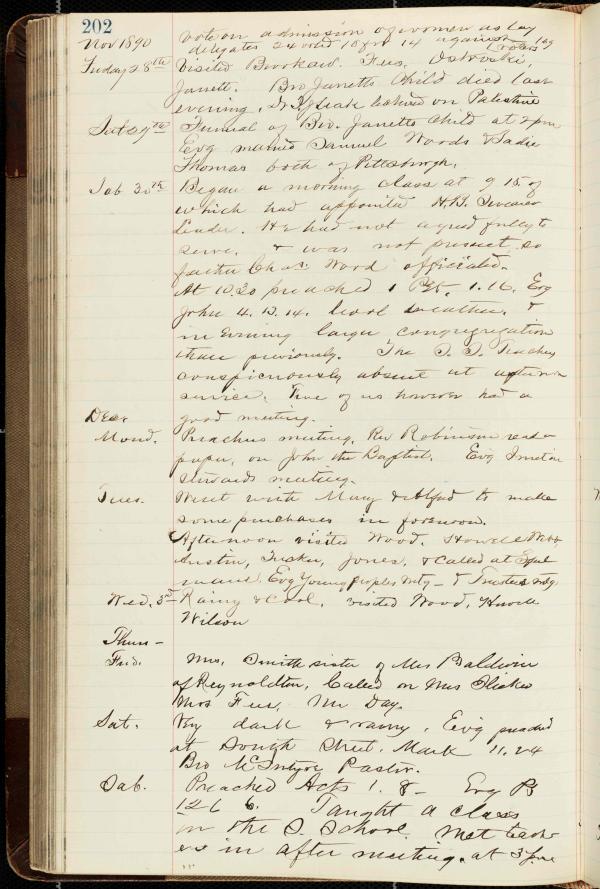 202
Nov 1890 vote on admission of women as lay
delegates 24 voted 10 for 14 against
Friday 28th Visited Brokaw. Fees. Ostroski,
Jarrett. Bro Jarretts child died last
evening. Dr leak lectured on Palestine
Sat 29th Funeral of Bro. Jarretts child at 2 pm
Evg married Samuel Woods & Sadie
Thomas both of Pittsburgh.
Sab 30th Began a morning class at 9 15 of
which had appointed H.B.
leader. He had not agreed fully to
serve. & was not present so
father Chas. Wood officiated.
At 10.30 preached 1 Pet. 1.16. Evg
John 4. 13. 14. Cool weather. &
in Evening larger congregation
than previously. The S. S. Teachers
conspicuously absent at afternoon
service. Five of us however had a
good meeting.
Dec
Mond. Preachers meeting. Rev Robinson read a
paper, on John the Baptist. Evg
Stewards meeting.
Tues. Went with Mary & Alfred to make
some purchases in forenoon.
Afternoon visited Wood. Howell
Austin, Tucker, Jones, & called at
Evg Young peoples mtg - & Trustees mtg
Wed. 3rd Rainy & Cool. visited Wood,
Wilson
Thurs -
Frid. Mrs. Smith sister of Mrs Baldwin
of Reynoldton, Called on Mrs
Mrs Fees, Mr Day.
Sat. Very dark & rainy. Evg preached
at South Street. Mark 11.24
Bro McIntyre Pastor.
Sab. Preached Acts 1. 8 - Evg Ps
126 6. Taught a class
in the S. School. Met teach-
ers in after meeting. at 3 pm